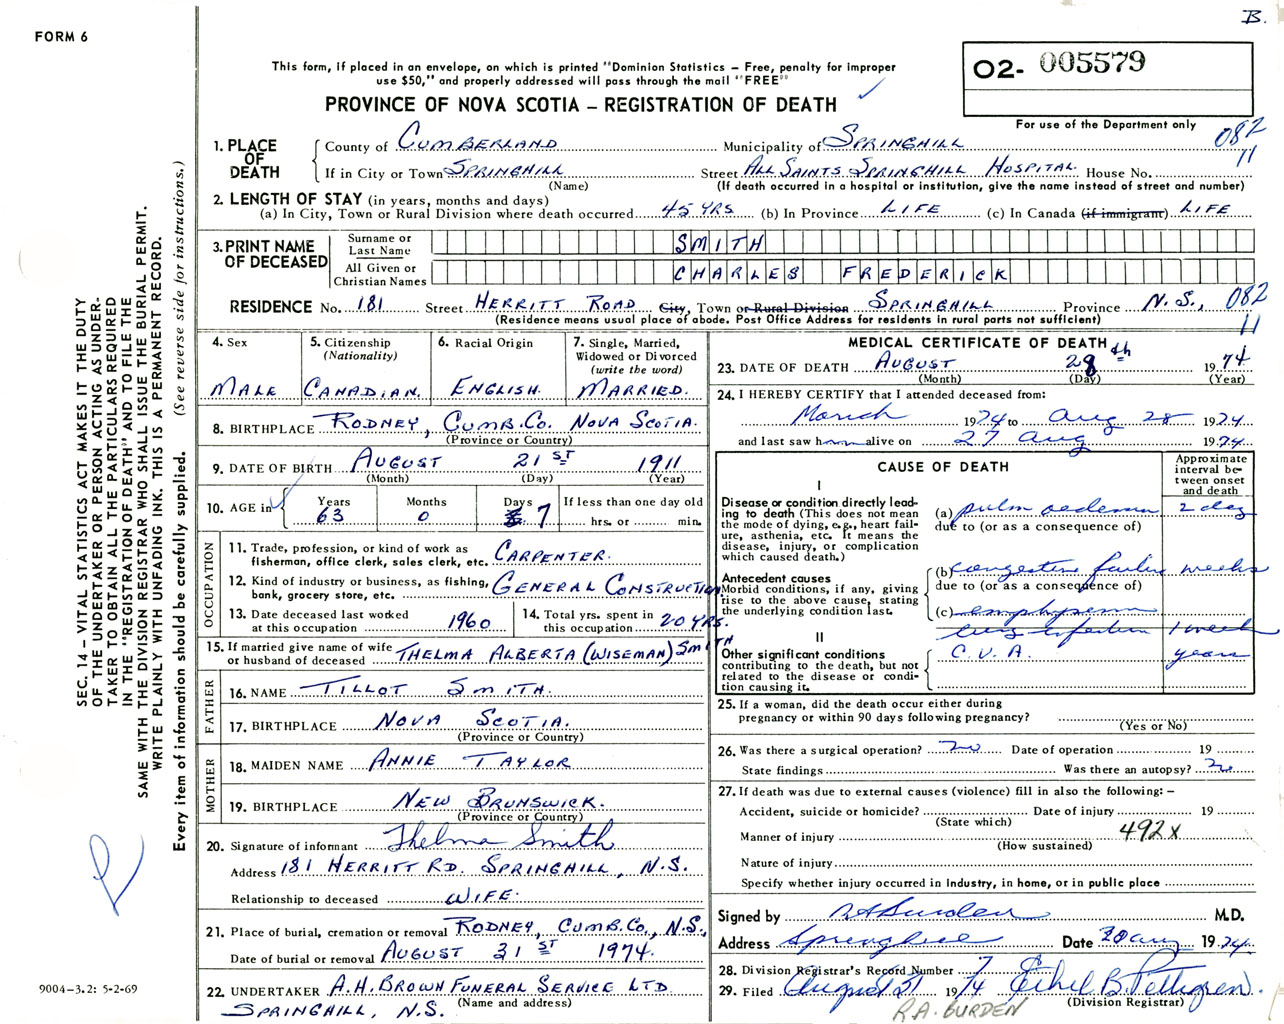 B.
FORM 6
This form, if placed in an envelope, on which is printed "Dominion Statistics – Free, penalty for improper
use $50," and properly addressed will pass through the mail "FREE"
PROVINCE OF NOVA SCOTIA – REGISTRATION OF DEATH
O2- 005579
For use of the Department only
082
11
1. PLACE OF DEATH
County of CUMBERLAND Municipality of SPRINGHILL
If in City or Town SPRINGHILL Street ALL SAINTS SPRINGHILL HOSPITAL House No.
(Name) (If death occurred in a hospital or institution, give the name instead of street and number)
2. LENGTH OF STAY (in years, months and days)
(a) In City, Town or Rural Division where death occurred 45 YRS (b) In Province LIFE (c) In Canada (if immigrant) LIFE
3. PRINT NAME OF DECEASED
Surname or Last Name SMITH
All Given or Christian Names CHARLES FREDERICK
RESIDENCE No. 181 Street HERRITT ROAD City, Town or Rural Division SPRINGHILL Province N.S., 082
(Residence means usual place of abode. Post Office Address for residents in rural parts not sufficient)
11
4. Sex
MALE
5. Citizenship
(Nationality)
CANADIAN
6. Racial Origin
ENGLISH
7. Single, Married,
Widowed or Divorced
(write the word)
MARRIED.
8. BIRTHPLACE RODNEY, CUMB. CO. NOVA SCOTIA.
(Province or Country)
9. DATE OF BIRTH AUGUST 21 ST 1911
(Month) (Day) (Year)
10. AGE in
Years Months Days If less than one day old
63 0 7 hrs. or min.
OCCUPATION
11. Trade, profession, or kind of work as
fisherman, office clerk, sales clerk, etc. CARPENTER.
12. Kind of industry or business, as fishing,
bank, grocery store, etc. GENERAL CONSTRUCTION
13. Date deceased last worked
at this occupation 1960
14. Total yrs. spent in
this occupation 20 YRS.
15. If married give name of wife
or husband of deceased THELMA ALBERTA (WISEMAN) SMITH
FATHER
16. NAME TILLOT SMITH.
17. BIRTHPLACE NOVA SCOTIA.
(Province or Country)
MOTHER
18. MAIDEN NAME ANNIE TAYLOR
19. BIRTHPLACE NEW BRUNSWICK.
(Province or Country)
20. Signature of informant Thelma Smith
Address 181 HERRITT RD. SPRINGHILL, N.S.
Relationship to deceased WIFE.
21. Place of burial, cremation or removal RODNEY, CUMB. CO., N.S.,
Date of burial or removal AUGUST 31 ST 1974.
22. UNDERTAKER A.H. BROWN FUNERAL SERVICE LTD
(Name and address)
SPRINGHILL, N.S.
MEDICAL CERTIFICATE OF DEATH
23. DATE OF DEATH AUGUST 28 th 1974
(Month) (Day) (Year)
24. I HEREBY CERTIFY that I attended deceased from:
March 1974 to Aug 28 1974
and last saw h alive on 27 Aug 1974
CAUSE OF DEATH
Approximate
interval be-
tween onset
and death
I
Disease or condition directly lead-
ing to death (This does not mean
the mode of dying, e.g., heart fail-
ure, asthenia, etc. It means the
disease, injury, or complication
which caused death.)
(a) pulm oedema 2 day
due to (or as a consequence of)
Antecedent causes
Morbid conditions, if any, giving
rise to the above cause, stating
the underlying condition last.
(b) congestive failure weeks
due to (or as a consequence of)
(c) emphysema
lung infection 1 week
II
Other significant conditions
contributing to the death, but not
related to the disease or condi-
tion causing it.
C.V.A. years
25. If a woman, did the death occur either during
pregnancy or within 90 days following pregnancy?
(Yes or No)
26. Was there a surgical operation? no Date of operation 19
State findings Was there an autopsy? no
27. If death was due to external causes (violence) fill in also the following: –
Accident, suicide or homicide? Date of injury 19
(State which)
Manner of injury 492X
(How sustained)
Nature of injury
Specify whether injury occurred in Industry, in home, or in public place
Signed by RABurden M.D.
Address Springhill Date aug 1974
28. Division Registrar's Record Number 7
29. Filed August 1974 Ethel B. Pettigrew.
(Division Registrar)
R.A. BURDEN
SEC. 14 – VITAL STATISTICS ACT MAKES IT THE DUTY
OF THE UNDERTAKER OR PERSON ACTING AS UNDER-
TAKER TO OBTAIN ALL THE PARTICULARS REQUIRED
IN THE "REGISTRATION OF DEATH" AND TO FILE THE
SAME WITH THE DIVISION REGISTRAR WHO SHALL ISSUE THE BURIAL PERMIT.
WRITE PLAINLY WITH UNFADING INK. THIS IS A PERMANENT RECORD.
Every item of information should be carefully supplied. (See reverse side for instructions.)
9004-3.2: 5-2-69